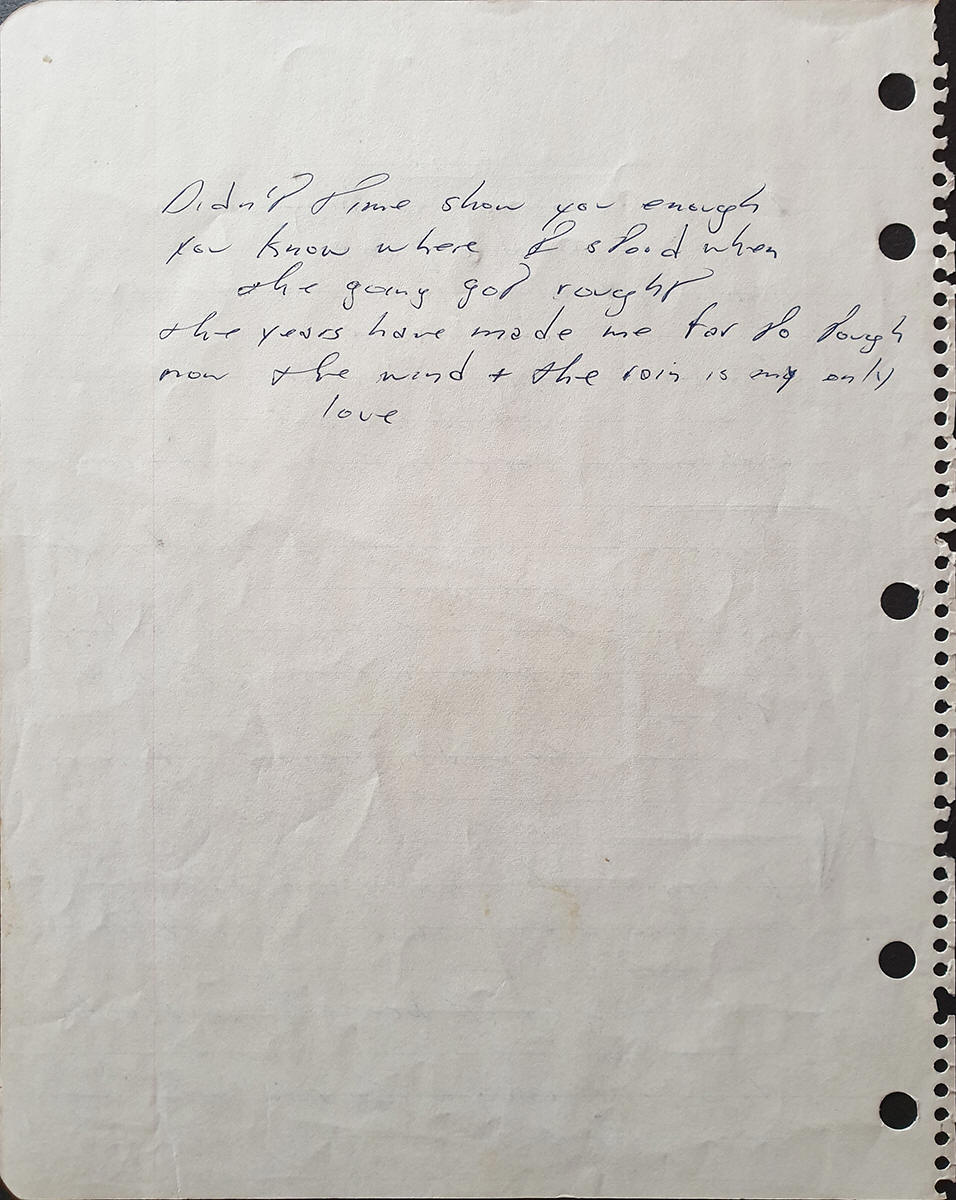 Didn't time show you enough
you know where I stood when
the going got rought
the years have made me far to tough
now the wind + the rain is my only
love